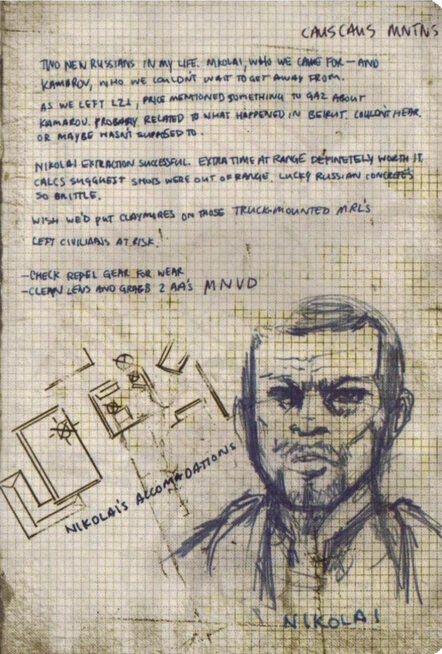 CAUSCAUS MNTNS
TWO NEW RUSSIANS IN MY LIFE. NIKOLAI, WHO WE CAME FOR—AND
KAMAROV, WHO WE COULDN'T WAIT TO GET AWAY FROM.
AS WE LEFT LZ1, PRICE MENTIONED SOMETHING TO GAZ ABOUT
KAMAROV. PROBABLY RELATED TO WHAT HAPPENED IN BEIRUT. COULDN'T HEAR.
OR MAYBE WASN'T SUPPOSED TO.
NIKOLAI EXTRACTION SUCESSFUL. EXTRA TIME AT RANGE DEFINETELY WORTH IT.
CALCS SUGGGEST SHOTS WERE OUT OF RANGE. LUCKY RUSSIAN CONCRETE'S
SO BRITTLE.
WISH WE'D PUT CLAYMORES ON THOSE TRUCK-MOUNTED MRL'S
LEFT CIVILIANS AT RISK.
-CHECK REPEL GEAR FOR WEAR
-CLEAN LENS AND GRABB 2 AA'S MNVD
NIKOLAI'S ACCOMODATIONS
NIKOLAI